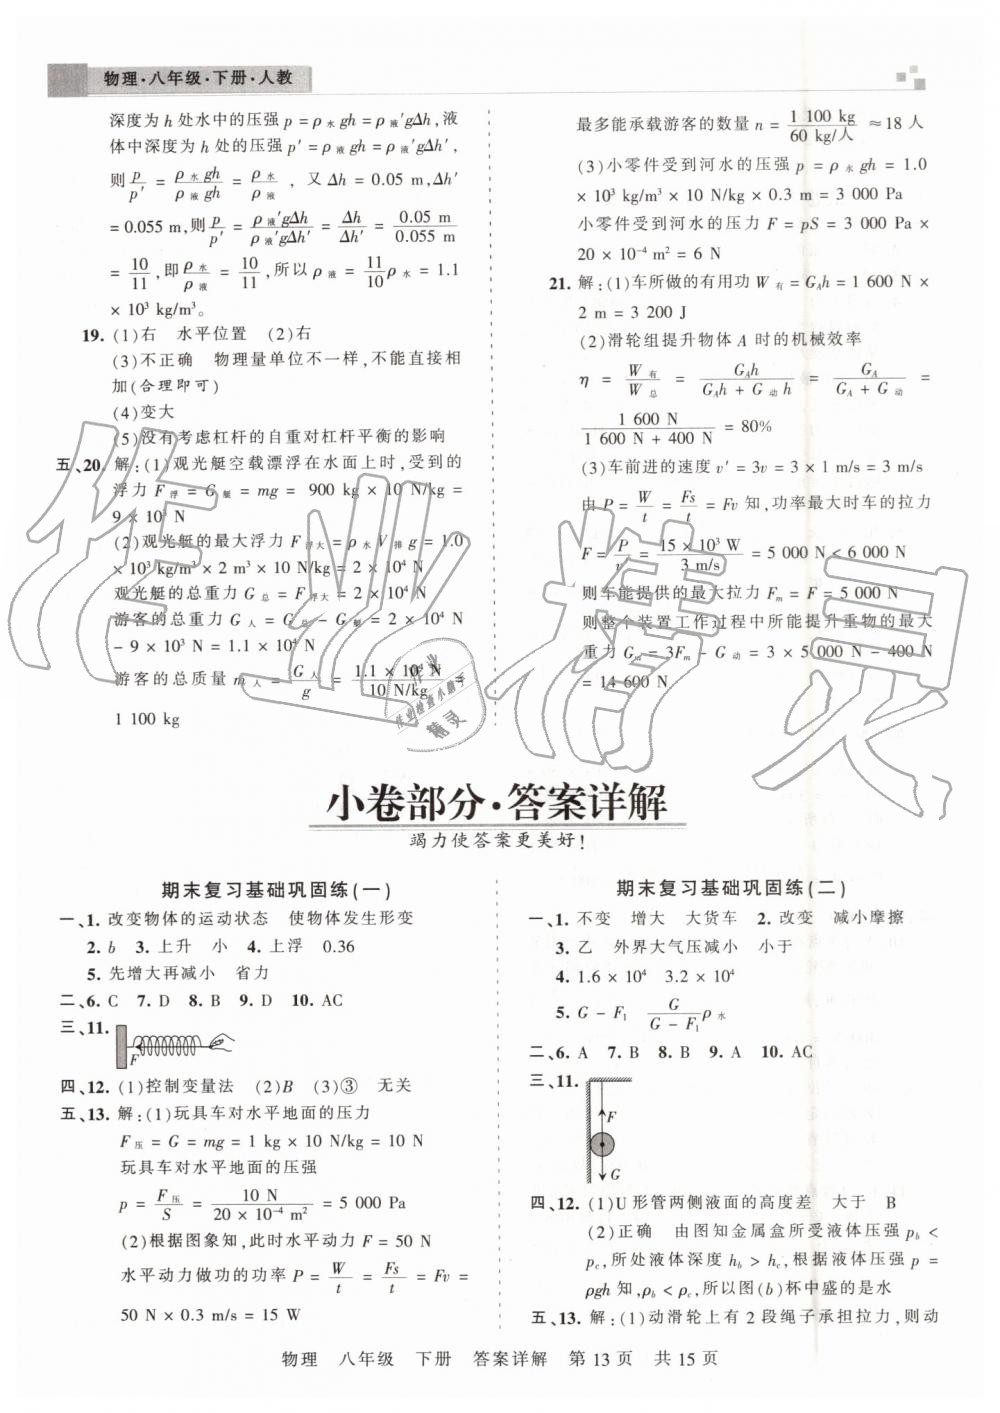 物理·八年级·下册·人教
深度为 h 处水中的压强 p = ρ水gh = ρ液′gΔh , 液
体中深度为 h 处的压强 p′ = ρ液gh = ρ液′gΔh′ ,
则 p/p′ = ρ水gh/ρ液gh = ρ水/ρ液 , 又 Δh = 0.05 m,Δh′
= 0.055 m,则 p/p′ = ρ液′gΔh/ρ液′gΔh′ = Δh/Δh′ = 0.05 m/0.055 m
= 10/11 ,即 ρ水/ρ液 = 10/11 ,所以 ρ液 = 11/10 ρ水 = 1.1
× 10³ kg/m³。
19. (1)右 水平位置 (2)右
(3)不正确 物理量单位不一样,不能直接相
加(合理即可)
(4)变大
(5)没有考虑杠杆的自重对杠杆平衡的影响
五、20. 解:(1)观光艇空载漂浮在水面上时,受到的
浮力 F浮 = G艇 = mg = 900 kg × 10 N/kg =
9 × 10³ N
(2)观光艇的最大浮力 F浮大 = ρ水V排g = 1.0
× 10³ kg/m³ × 2 m³ × 10 N/kg = 2 × 10⁴ N
观光艇的总重力 G总 = F浮大 = 2 × 10⁴ N
游客的总重力 G人 = G总 − G艇 = 2 × 10⁴ N
− 9 × 10³ N = 1.1 × 10⁴ N
游客的总质量 m人 = G人/g = 1.1 × 10⁴ N/10 N/kg =
1 100 kg
最多能承载游客的数量 n = 1 100 kg/60 kg/人 ≈18 人
(3)小零件受到河水的压强 p = ρ水gh = 1.0
× 10³ kg/m³ × 10 N/kg × 0.3 m = 3 000 Pa
小零件受到河水的压力 F = pS = 3 000 Pa ×
20 × 10⁻⁴ m² = 6 N
21. 解:(1)车所做的有用功 W有 = G_A h = 1 600 N ×
2 m = 3 200 J
(2)滑轮组提升物体 A 时的机械效率
η = W有/W总 = G_A h/(G_A h + G动 h) = G_A/(G_A + G动) =
1 600 N/(1 600 N + 400 N) = 80%
(3)车前进的速度 v′ = 3v = 3 × 1 m/s = 3 m/s
由 P = W/t = Fs/t = Fv 知,功率最大时车的拉力
F = P/v′ = 15 × 10³ W/3 m/s = 5 000 N < 6 000 N
则车能提供的最大拉力 Fm = F = 5 000 N
则整个装置工作过程中所能提升重物的最大
重力 Gm = 3Fm − G动 = 3 × 5 000 N − 400 N
= 14 600 N
小卷部分·答案详解
竭力使答案更美好!
期末复习基础巩固练(一)
一、1. 改变物体的运动状态 使物体发生形变
2. b 3. 上升 小 4. 上浮 0.36
5. 先增大再减小 省力
二、6. C 7. D 8. B 9. D 10. AC
三、11.
F
四、12. (1)控制变量法 (2)B (3)③ 无关
五、13. 解:(1)玩具车对水平地面的压力
F压 = G = mg = 1 kg × 10 N/kg = 10 N
玩具车对水平地面的压强
p = F压/S = 10 N/20 × 10⁻⁴ m² = 5 000 Pa
(2)根据图象知,此时水平动力 F = 50 N
水平动力做功的功率 P = W/t = Fs/t = Fv =
50 N × 0.3 m/s = 15 W
期末复习基础巩固练(二)
一、1. 不变 增大 大货车 2. 改变 减小摩擦
3. 乙 外界大气压减小 小于
4. 1.6 × 10⁴ 3.2 × 10⁴
5. G − F₁ G/(G − F₁) ρ水
二、6. A 7. B 8. B 9. A 10. AC
三、11.
F
G
四、12. (1)U 形管两侧液面的高度差 大于 B
(2)正确 由图知金属盒所受液体压强 p_b <
p_c,所处液体深度 h_b > h_c,根据液体压强 p =
ρgh 知,ρ_b < ρ_c,所以图(b)杯中盛的是水
五、13. 解:(1)动滑轮上有 2 段绳子承担拉力,则动
物理 八年级 下册 答案详解 第 13 页 共 15 页
作业精灵
作业
作业检查小助手
精灵